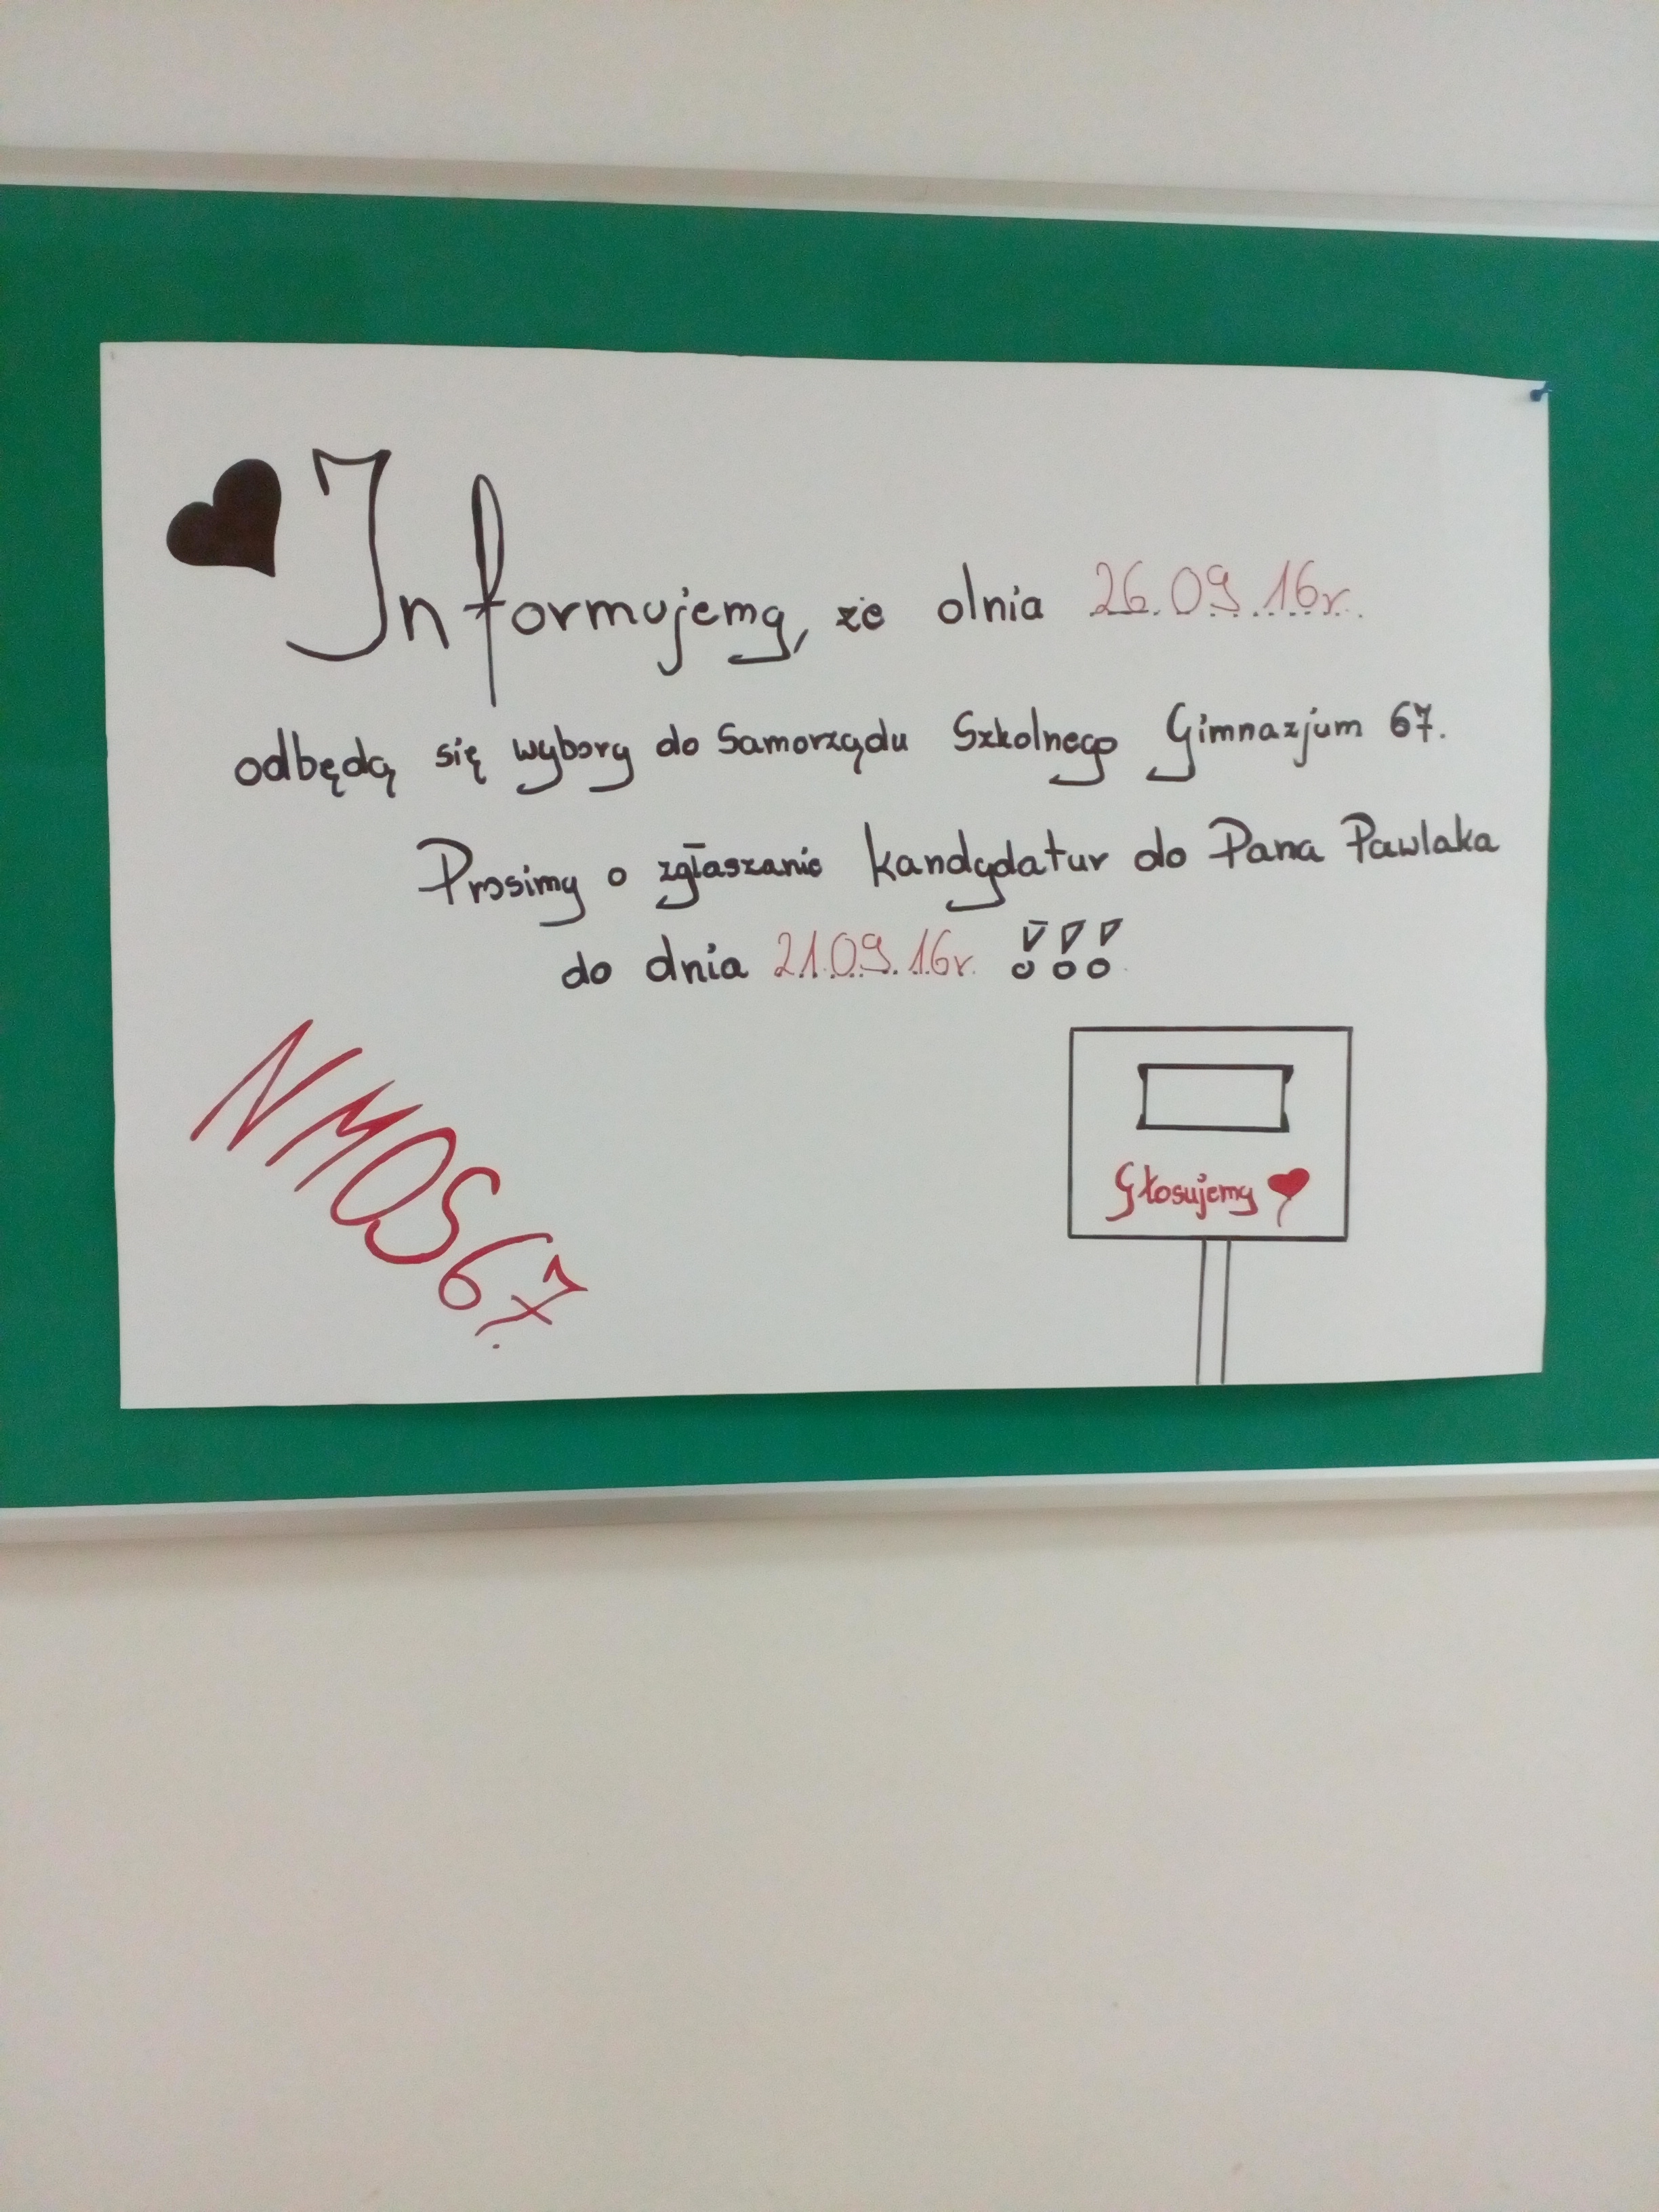 Informujemy, że dnia 26.09.16r.
odbędą się wybory do Samorządu Szkolnego Gimnazjum 67.
Prosimy o zgłaszanie kandydatur do Pana Pawlaka
do dnia 21.09.16r. !!!
NMOS67
Głosujemy